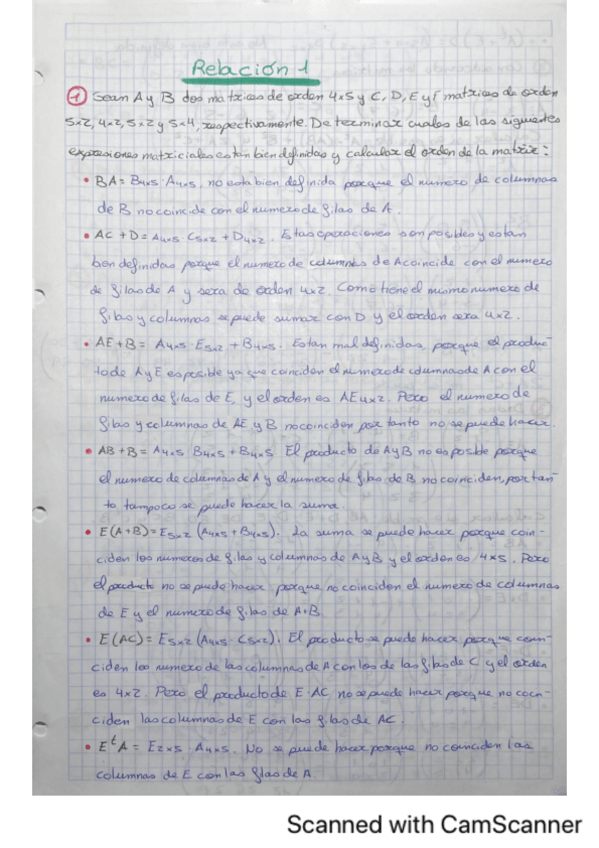 Relación 1
① Sean A y B dos matrices de orden 4x5 y C, D, E y F matrices de orden
5x2, 4x2, 5x2 y 5x4, respectivamente. Determinar cuales de las siguientes
expresiones matriciales estan bien definidas y calcular el orden de la matriz:
• BA = B4x5 · A4x5. no esta bien definida porque el numero de columnas
de B no coincide con el numero de filas de A.
• AC + D = A4x5 · C5x2 + D4x2. Estas operaciones son posibles y estan
bien definidas porque el numero de columnas de A coincide con el numero
de filas de A y sera de orden 4x2. Como tiene el mismo numero de
filas y columnas se puede sumar con D y el orden sera 4x2.
• AE + B = A4x5 · E5x2 + B4x5. Estan mal definidas, porque el produc-
to de A y E es posible ya que coinciden el numero de columnas de A con el
numero de filas de E, y el orden es AE4x2. Pero el numero de
filas y columnas de AE y B no coinciden por tanto no se puede hacer.
• AB + B = A4x5 B4x5 + B4x5 El producto de A y B no es posible porque
el numero de columnas de A y el numero de filas de B no coinciden, por tan-
to tampoco se puede hacer la suma.
• E(A+B) = E5x2 (A4x5 + B4x5). La suma se puede hacer porque coin-
ciden los numeros de filas y columnas de A y B y el orden es 4x5. Pero
el producto no se puede hacer porque no coinciden el numero de columnas
de E y el numero de filas de A+B.
• E(AC) = E5x2 (A4x5 · C5x2). El producto se puede hacer porque coin-
ciden los numero de las columnas de A con los de las filas de C y el orden
es 4x2. Pero el producto de E·AC no se puede hacer porque no coin-
ciden las columnas de E con las filas de AC.
• EᵗA = E2x5 · A4x5. No se puede hacer porque no coinciden las
columnas de E con las filas de A
Scanned with CamScanner